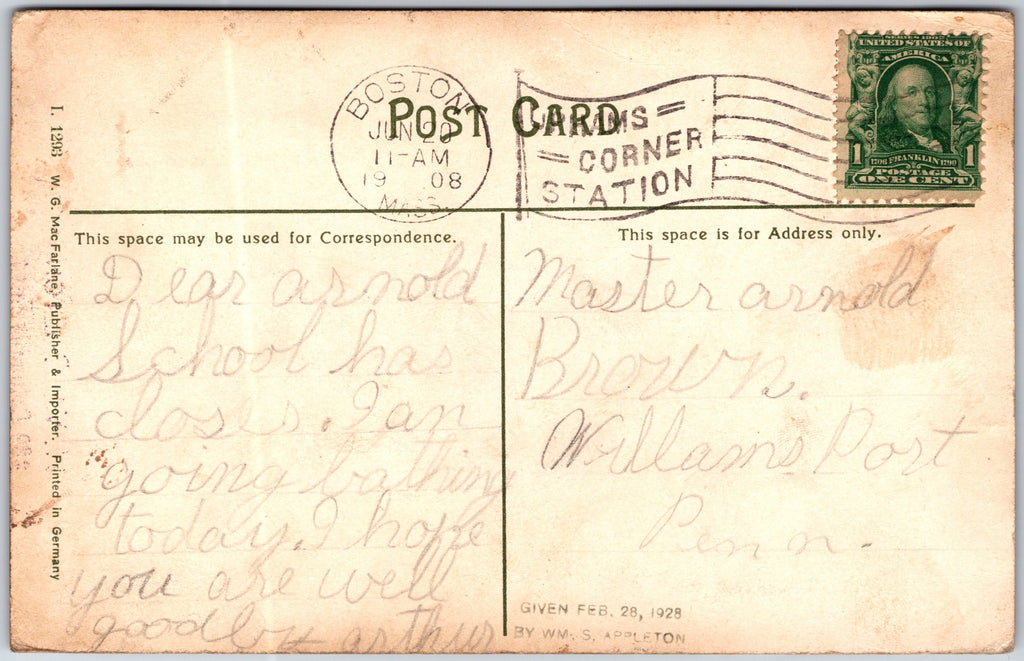 POST CARD
BOSTON
JUN 20
11-AM
19 08
MASS.
CORNER
STATION
SERIES 1902
UNITED STATES OF
AMERICA
1 1
1706 FRANKLIN 1790
POSTAGE
ONE CENT
This space may be used for Correspondence.
This space is for Address only.
Dear arnold
School has
closes. I an
going bathing
today. I hope
you are well
goodby arthur
Master arnold
Brown.
Willams Port
Penn.
GIVEN FEB. 28, 1928
BY WM. S. APPLETON
I. 1293 W. G. MacFarlane, Publisher & Importer. Printed in Germany